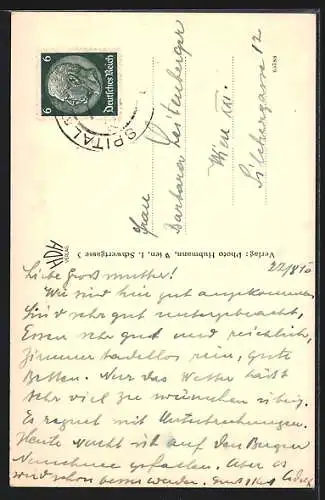 6
Deutsches Reich
6
SPITAL
Frau
Barbara Leitenberger
Wien XXI.
Silchergasse 12
Verlag: Photo Hubmann, Wien, I. Schwertgasse 3
HDH
VERLAG
Liebe Großmutter!
Wir sind hier gut angekommen
sind sehr gut untergebracht,
Essen sehr gut und reichlich,
Zimmer tadellos rein, gute
Betten. Nur das Wetter läßt
sehr viel zu wünschen übrig.
Es regnet mit Unterbrechungen.
Heute Nacht ist auf den Bergen
Neuschnee gefallen. Aber es
wird schon besser werden.